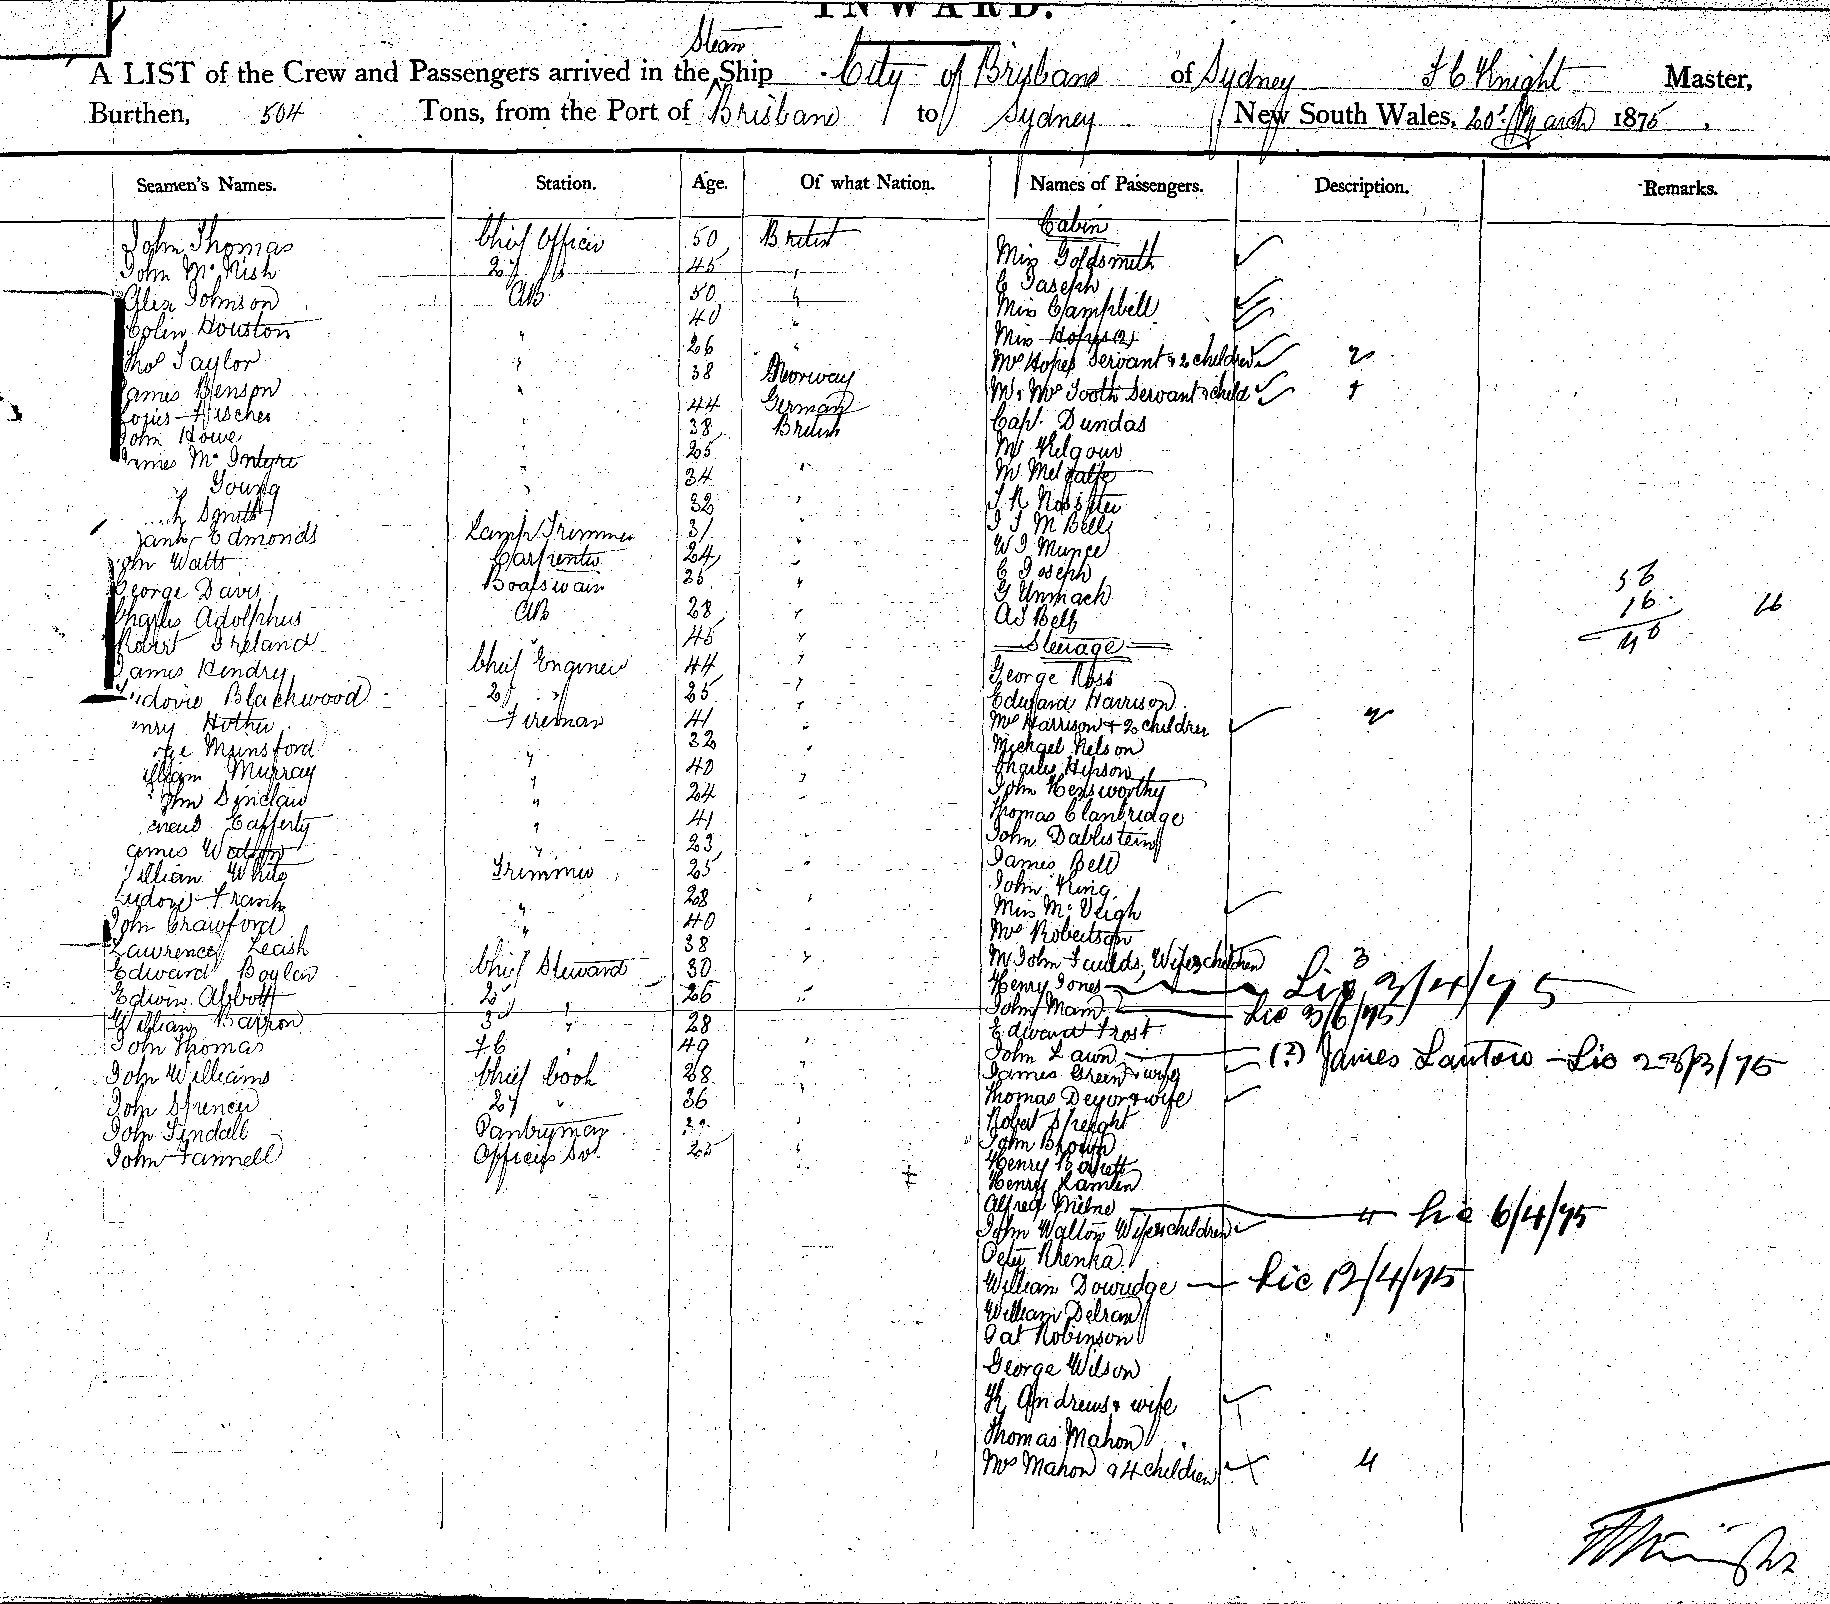 INWARD.
Steam
A LIST of the Crew and Passengers arrived in the Ship City of Brisbane of Sydney Knight Master,
Burthen, 504 Tons, from the Port of Brisbane to Sydney New South Wales, 20th March 1875
Seamen's Names. Station. Age. Of what Nation. Names of Passengers. Description. Remarks.
Cabin
John Thomas Chief Officer 50 British Miss Goldsmith
John McNish 2d " 45 " C Joseph
Alex Johnson AB 50 " Miss Campbell
Colin Houston " 40 " Miss
Thos Taylor " 26 " Mrs Hopes Servant & 2 children 2
James Benson " 38 Norway Mr & Mrs Tooth Servant & child 1
Louis Fischer " 44 German Capt. Dundas
John Howe " 38 British Mr Kelgour
James McIntyre " 25 " Mr Metcalfe
Young " 34 "
Smith " 32 " J M Bell
Edmonds Lamp Trimmer 31 " W J Munce
John Watts Carpenter 24 " C Joseph
George Davis Boatswain 25 " G Unmach
Charles Adolphus AB 28 " A J Bell
Robert Ireland " 45 " Steerage
James Hendry Chief Engineer 44 " George Ross
Blackwood 2d " 25 " Edward Harrison
Fireman 41 " Mrs Harrison & 2 children 2
Mainsford " 32 " Michael Nelson
William Murray " 40 " Charles Hipson
John Sinclair " 24 " John Hensworthy
Cafferty " 41 " Thomas Clanbridge
James Watson " 23 " John Dablistein
William White Trimmer 25 " James Bell
Frank " 28 " John King
John Crawford " 40 " Miss McVeigh
Lawrence Leash 38 " Mrs Robertson
Edward Boylen Chief Steward 30 " Mr John Faulds, Wife 3 children 3
Edwin Abbott 2d " 26 " Henry Jones Lic 2/4/75
William Barron 3d " 28 John Mann Lic 3/6/75
John Thomas 49 " Edward Frost
John Williams Chief Cook 28 " John Lawn (?) James Lantow Lic 23/3/75
John Spencer 2d " 36 James Green & wife
John Tindall Pantryman Thomas Deyor & wife
John Fannell Officers Sv. 25 " Robert Speight
John Brown
Henry
Henry
Alfred Milne Lic 6/4/75
John Walton Wife 4 children 4
Peter Rhenka
William Dowridge Lic 12/4/75
William Delran
Pat Robinson
George Wilson
Andrews & wife
Thomas Mahon
Mrs Mahon & 4 children 4
56
16 16
40